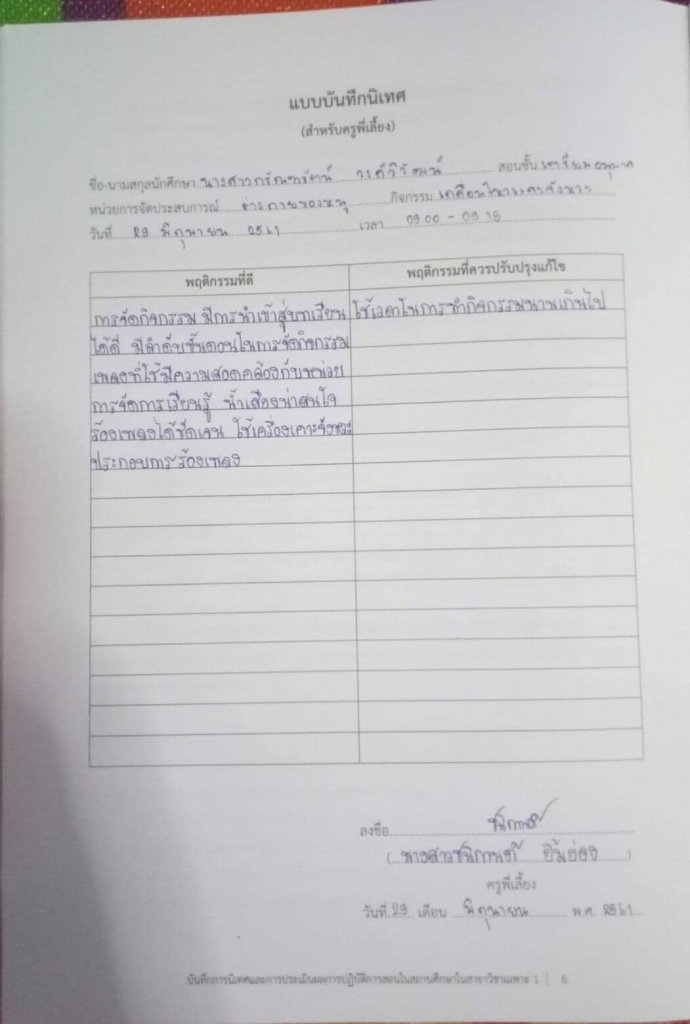 แบบบันทึกนิเทศ
(สำหรับครูพี่เลี้ยง)
ชื่อ-นามสกุลนักศึกษา นางสาว สอนชั้น เตรียมอนุบาล
หน่วยการจัดประสบการณ์ ร่างกายของหนู กิจกรรม เคลื่อนไหวและจังหวะ
วันที่ 29 มิถุนายน 2561 เวลา 09.00 - 09.15
พฤติกรรมที่ดี พฤติกรรมที่ควรปรับปรุงแก้ไข
การจัดกิจกรรม มีการนำเข้าสู่บทเรียน ใช้เวลาในการทำกิจกรรมนานเกินไป
ได้ดี มีลำดับขั้นตอนในการจัดกิจกรรม
เพลงที่ใช้มีความสอดคล้องกับหน่วย
การจัดการเรียนรู้ น้ำเสียงน่าสนใจ
ร้องเพลงได้ชัดเจน ใช้เครื่องเคาะจังหวะ
ประกอบการร้องเพลง
ลงชื่อ
(นางสาว )
ครูพี่เลี้ยง
วันที่ 29 เดือน มิถุนายน พ.ศ. 2561
บันทึกการนิเทศและการประเมินผลการปฏิบัติการสอนในสถานศึกษาในสาขาวิชาเฉพาะ 1 | 6